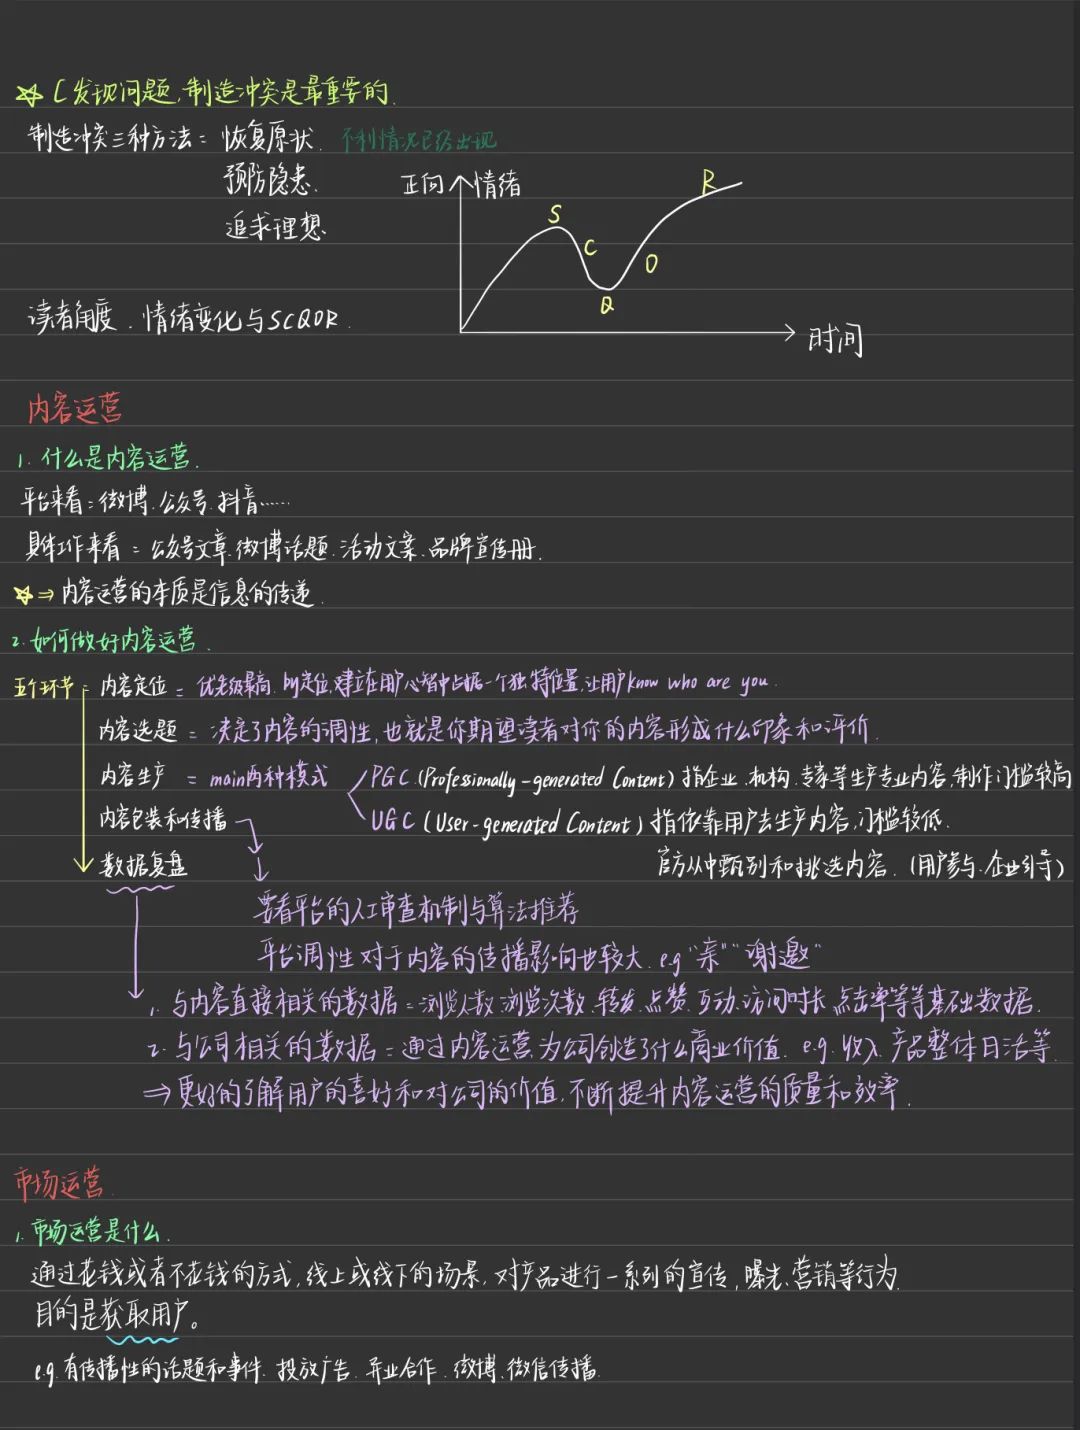 ☆ C发现问题,制造冲突是最重要的.
制造冲突三种方法= 恢复原状. 不利情况已经出现
预防隐患.
追求理想.
正向 情绪
S
C
Q
O
R
时间
读者角度.情绪变化与SCQOR.
内容运营
1. 什么是内容运营.
平台来看:微博.公众号.抖音……
具体工作来看:公众号文章.微博话题.活动文案.品牌宣传册.
☆⇒内容运营的本质是信息的传递.
2.如何做好内容运营.
五个环节= 内容定位= 优先级最高. 即定位,建立在用户心智中占据一个独特位置,让用户know who are you.
内容选题= 决定了内容的调性,也就是你期望读者对你的内容形成什么印象和评价.
内容生产 = main两种模式 PGC (Professionally-generated Content) 指企业.机构.专家等生产专业内容,制作门槛较高
UGC (User-generated Content) 指依靠用户去生产内容,门槛较低.
官方从中甄别和挑选内容. (用户参与.企业引导)
内容包装和传播
数据复盘
要看平台的人工审查机制与算法推荐
平台调性对于内容的传播影响也较大. e.g "亲" "谢邀"
1. 与内容直接相关的数据=浏览人数.浏览次数.转发.点赞.互动.访问时长.点击率等等基础数据.
2. 与公司相关的数据=通过内容运营为公司创造了什么商业价值. e.g.收入.产品整体日活等.
⇒更好的了解用户的喜好和对公司的价值,不断提升内容运营的质量和效率.
市场运营.
1. 市场运营是什么.
通过花钱或者不花钱的方式,线上或线下的场景,对产品进行一系列的宣传,曝光、营销等行为.
目的是获取用户。
e.g.有传播性的话题和事件.投放广告.异业合作.微博、微信传播.